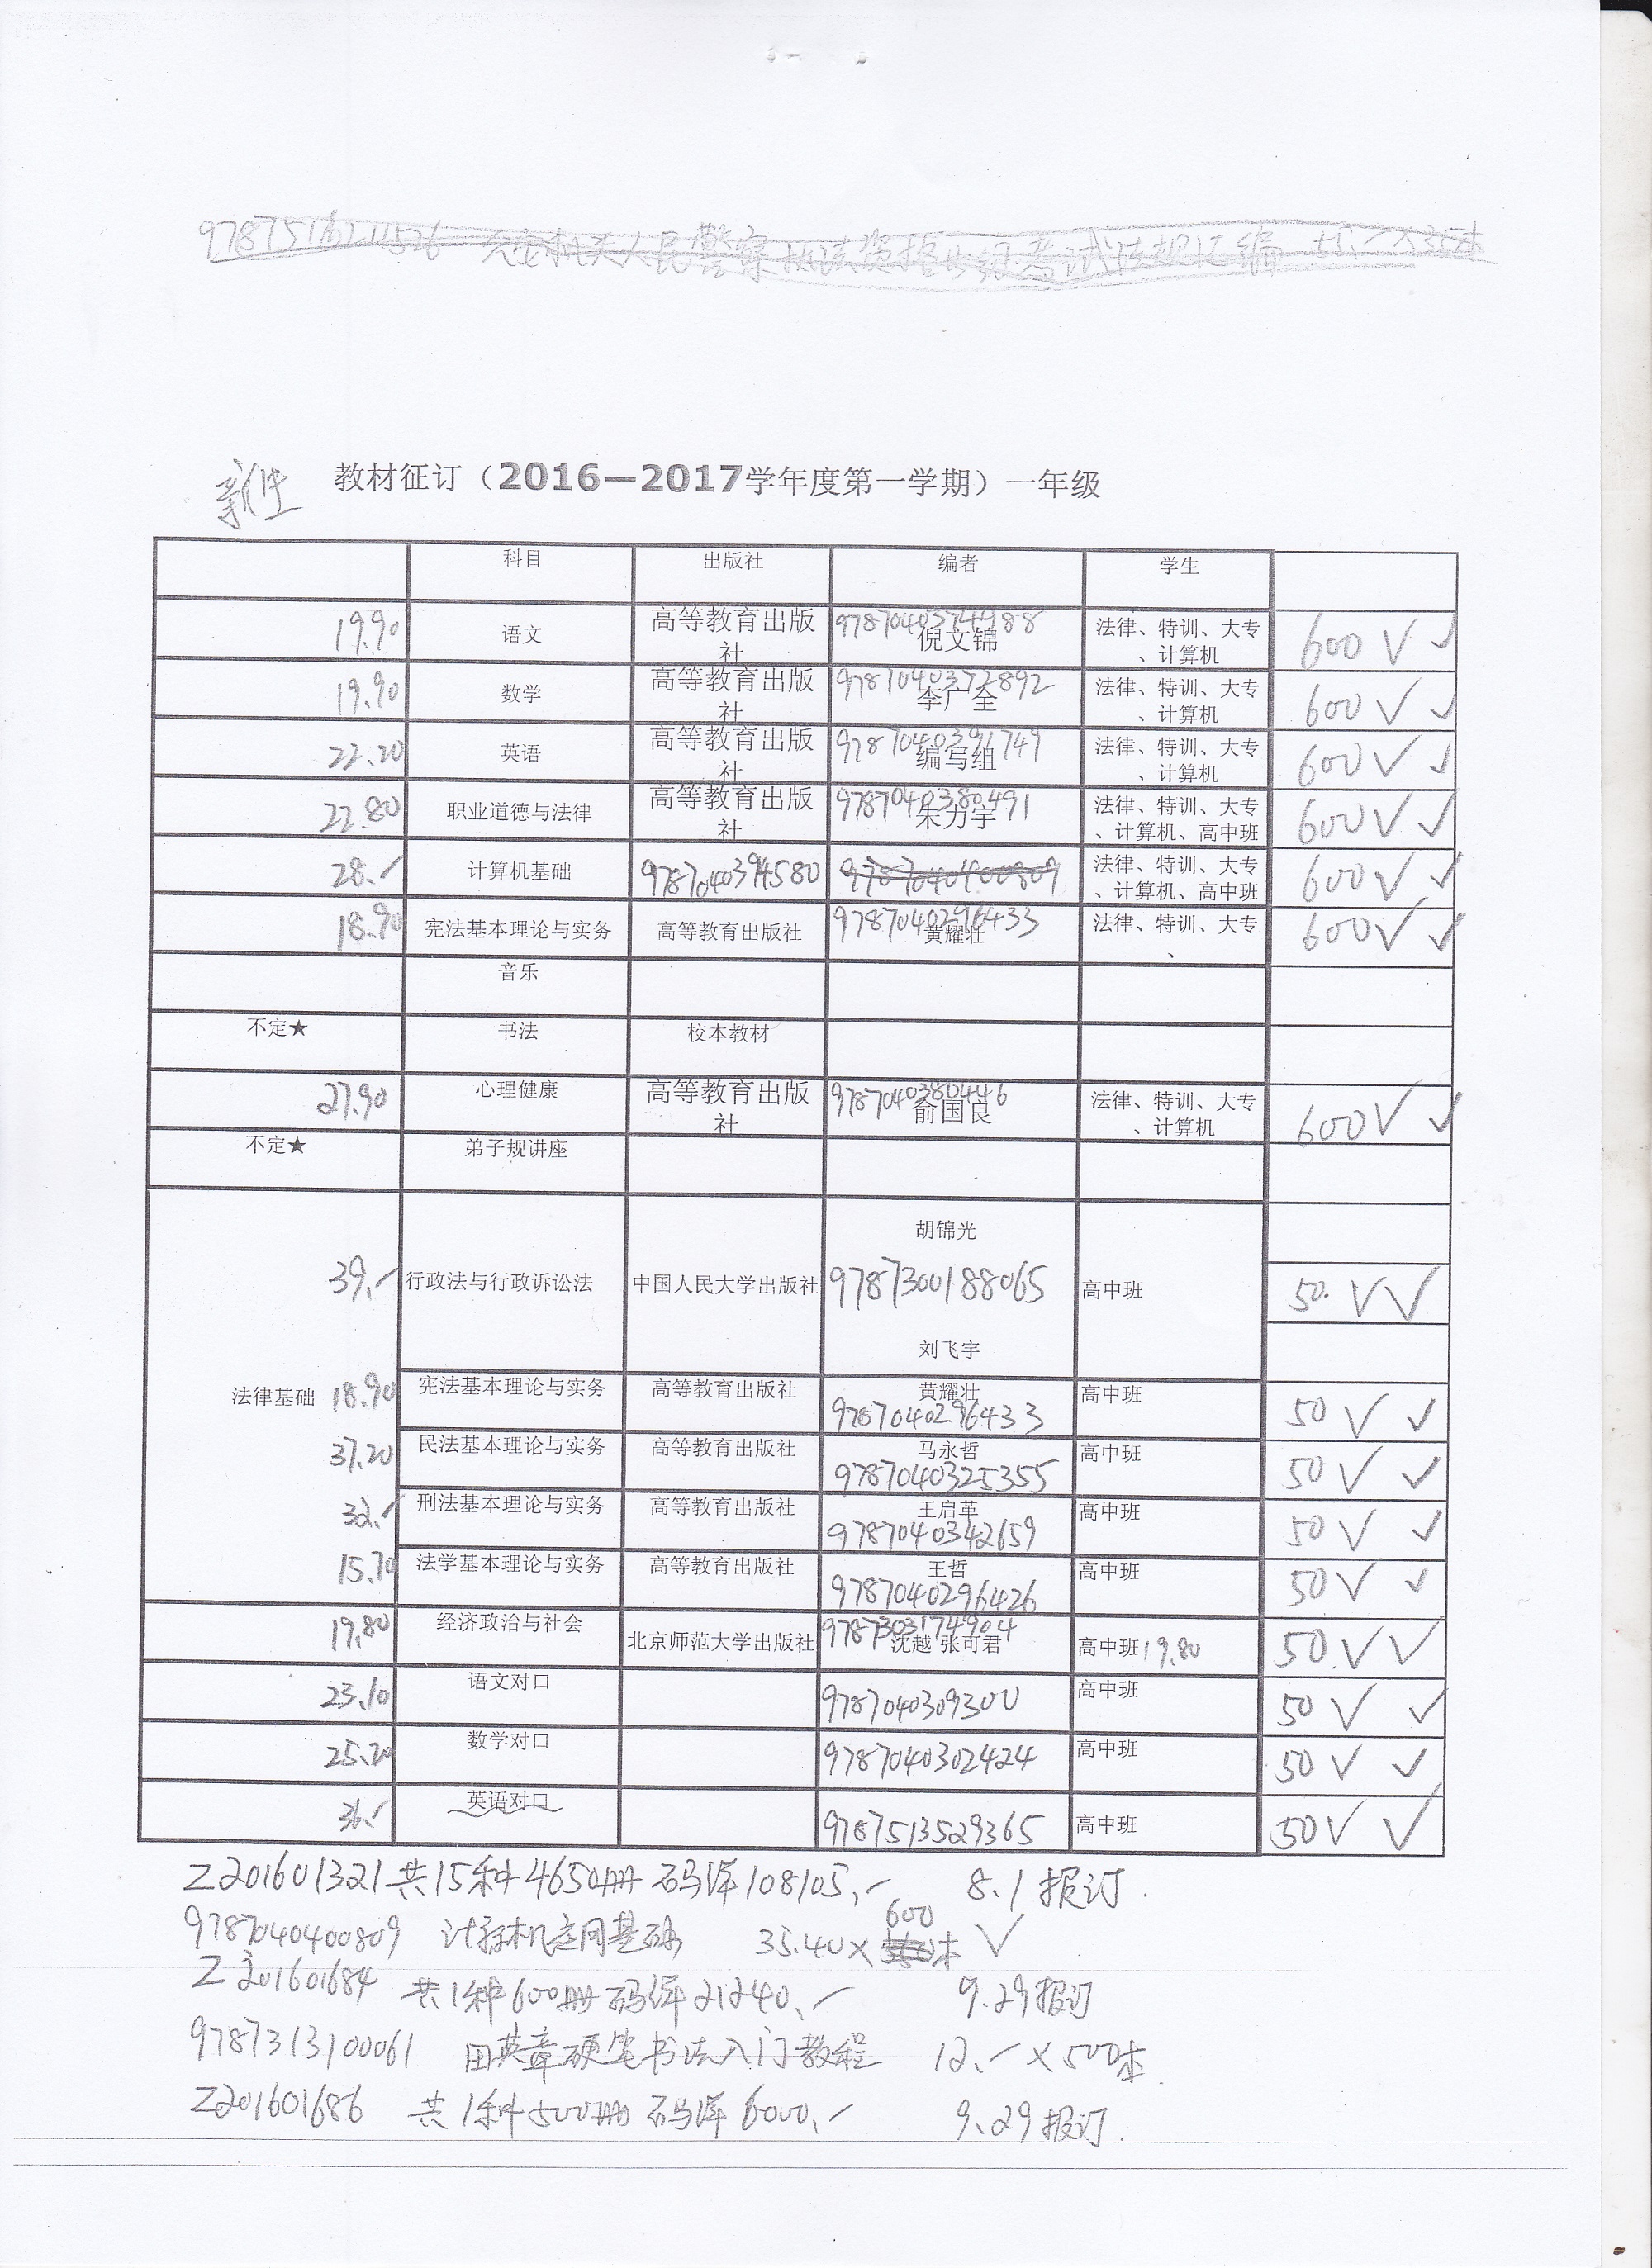 9787516211526 公安机关人民警察执法资格等级考试法规汇编
新生 教材征订（2016—2017学年度第一学期）一年级
科目 出版社 编者 学生
19.90 语文 高等教育出版社 9787040374988 倪文锦 法律、特训、大专、计算机 600 ✓ ✓
19.90 数学 高等教育出版社 9787040372892 李广全 法律、特训、大专、计算机 600 ✓ ✓
22.20 英语 高等教育出版社 9787040391749 编写组 法律、特训、大专、计算机 600 ✓ ✓
22.80 职业道德与法律 高等教育出版社 9787040380491 朱力宇 法律、特训、大专、计算机、高中班 600 ✓ ✓
28.- 计算机基础 9787040394580 9787040400809 法律、特训、大专、计算机、高中班 600 ✓ ✓
18.90 宪法基本理论与实务 高等教育出版社 9787040296433 黄耀壮 法律、特训、大专、 600 ✓ ✓
音乐
不定★ 书法 校本教材
27.90 心理健康 高等教育出版社 9787040380446 俞国良 法律、特训、大专、计算机 600 ✓ ✓
不定★ 弟子规讲座
法律基础
39.- 行政法与行政诉讼法 中国人民大学出版社 胡锦光 9787300188065 刘飞宇 高中班 50. ✓ ✓
18.90 宪法基本理论与实务 高等教育出版社 黄耀壮 9787040296433 高中班 50 ✓ ✓
37.20 民法基本理论与实务 高等教育出版社 马永哲 9787040325355 高中班 50 ✓ ✓
32.- 刑法基本理论与实务 高等教育出版社 王启革 9787040342659 高中班 50 ✓ ✓
15.70 法学基本理论与实务 高等教育出版社 王哲 9787040296426 高中班 50 ✓ ✓
19.80 经济政治与社会 北京师范大学出版社 9787303174904 沈越 张可君 高中班 19.80 50. ✓ ✓
23.10 语文对口 9787040309300 高中班 50 ✓ ✓
25.20 数学对口 9787040302424 高中班 50 ✓ ✓
36.- 英语对口 9787513529365 高中班 50 ✓ ✓
Z201601321 共15种4650册 码洋108105.- 8.1报订.
9787040400809 计算机应用基础 35.40×600本 ✓
Z201601684 共1种600册码洋21240.- 9.29报订
9787313100061 田英章硬笔书法入门教程 12.-×500本.
Z201601686 共1种500册码洋6000.- 9.29报订.